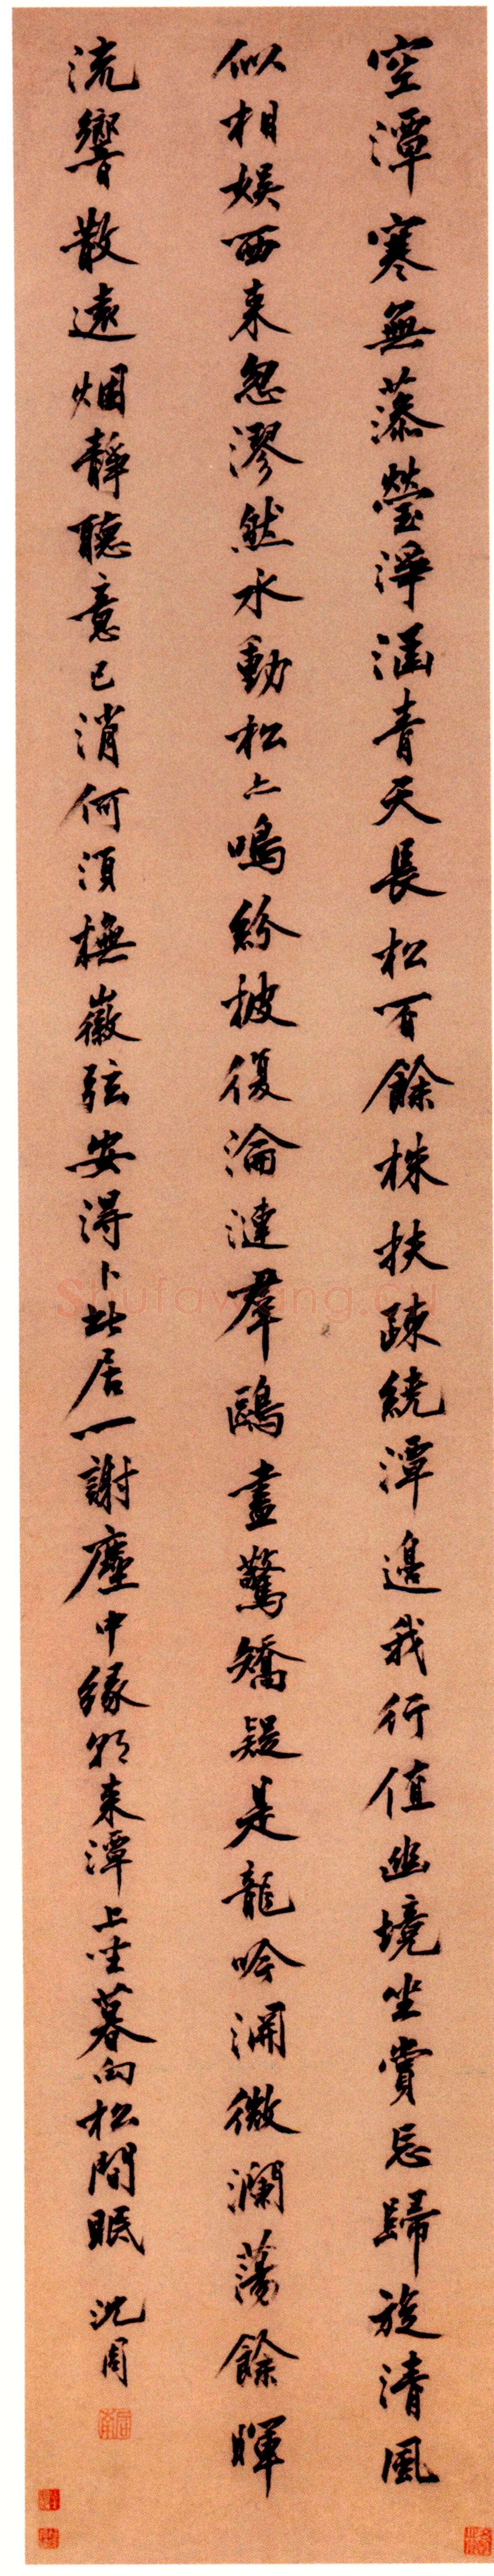 空潭寒無藻瑩淨涵青天長松百餘株扶疎繞潭邊我行值幽境坐賞忘歸旋清風
似相娛西來忽漻然水動松亦鳴紛披復淪漣羣鷗盡驚矯疑是龍吟淵微瀾蕩餘暉
流響散遠烟靜聽意已消何須撫徽弦安得卜此居一謝塵中緣朝來潭上坐暮向松間眠 沈周